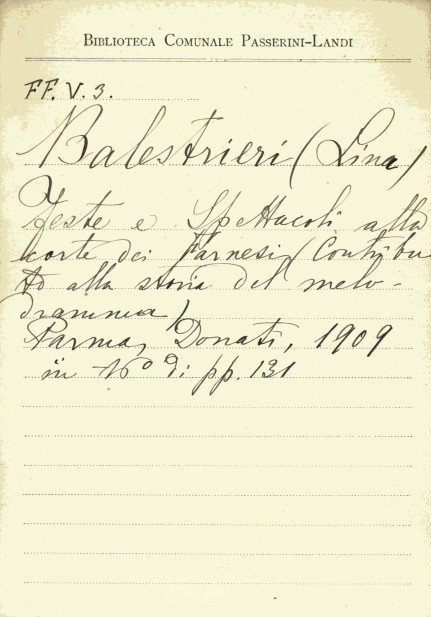 BIBLIOTECA COMUNALE PASSERINI-LANDI
FF. V. 3.
Balestrieri (Lina)
Feste e Spettacoli alla
corte dei Farnesi (Contribu
to alla storia del melo-
dramma)
Parma, Donati, 1909
in 16° di pp. 131